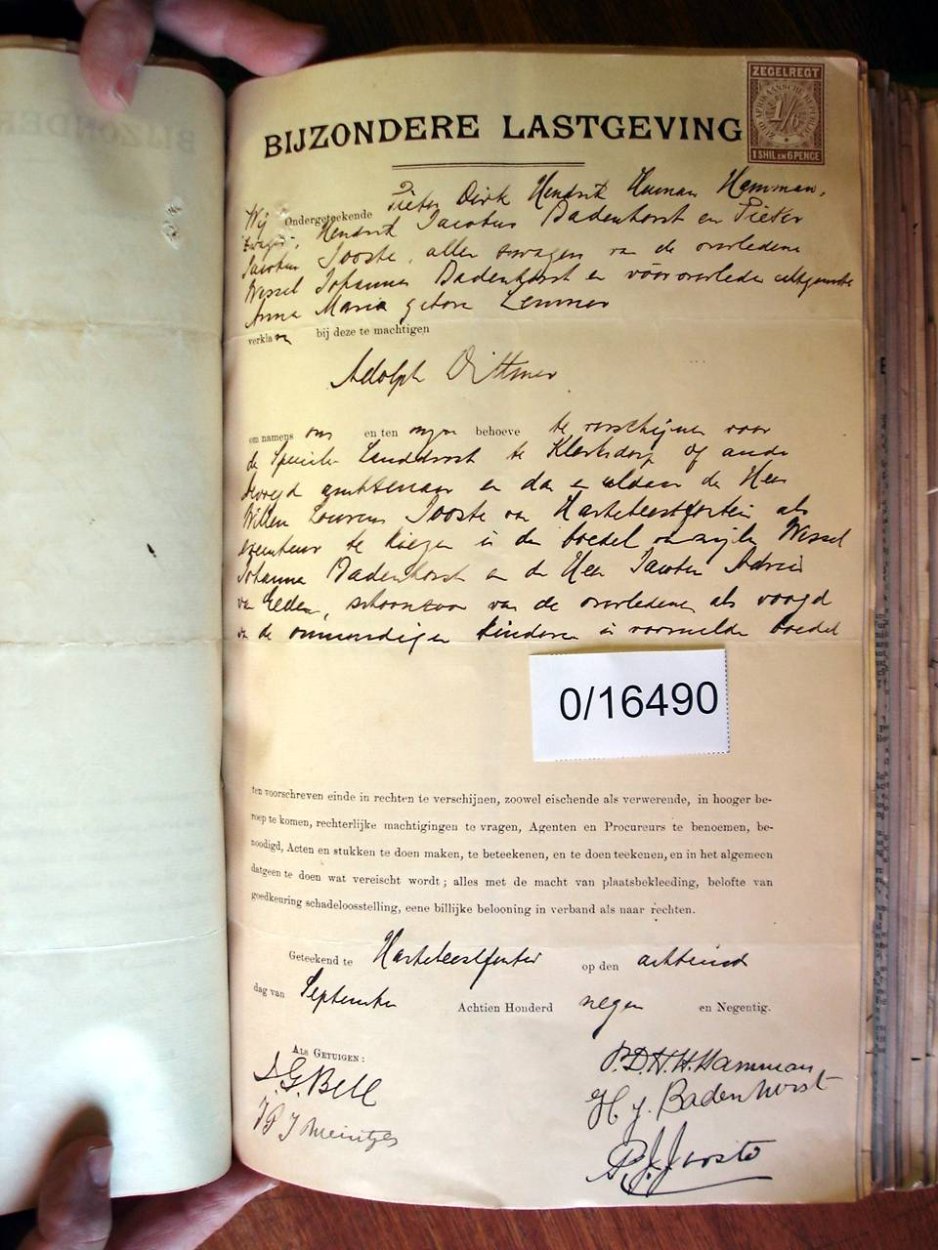 ZEGELREGT
ZUID AFRIKAANSCHE REPUBLIEK
1/6
1 SHIL EN 6 PENCE
BIJZONDERE LASTGEVING
Pieter Dirk Hendrik Human Hamman,
Wij Ondergeteekende
zwager, Hendrik Jacobus Badenhorst en Pieter
Jacobus Jooste, allen zwagers van de overledene
Wessel Johannes Badenhorst en vooroverlede echtgenote
Anna Maria gebore Lemmer
verklaren bij deze te machtigen
Adolph Dittmer
om namens ons en ten onzen behoeve te verschijnen voor
de Speciale Landdrost te Klerksdorp of ander
bevoegd ambtenaar en daar en aldaar de Heer
Willem Lourens Jooste van Hartebeestfontein als
executeur te kiezen in den boedel van wijlen Wessel
Johannes Badenhorst en de Heer Jacobus Adriaan
van Eeden, schoonzoon van de overledene als voogd
van de onmondigen kinderen in voormelde boedel
0/16490
ten voorschreven einde in rechten te verschijnen, zoowel eischende als verwerende, in hooger be-
roep te komen, rechterlijke machtigingen te vragen, Agenten en Procureurs te benoemen, be-
noodigd, Acten en stukken te doen maken, te beteekenen, en te doen teekenen, en in het algemeen
datgeen te doen wat vereischt wordt; alles met de macht van plaatsbekleeding, belofte van
goedkeuring schadeloosstelling, eene billijke belooning in verband als naar rechten.
Geteekend te Hartebeestfontein op den achtiend
dag van September Achtien Honderd negen en Negentig.
ALS GETUIGEN:
J. G. Bell
J P J Meintjes
P.D.H.H. Hamman
H. J. Badenhorst
P. J. Jooste